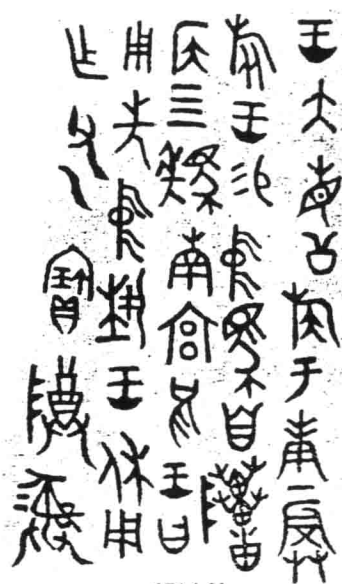 王大省公族于庚𢦚
旅王易中馬自隓
侯四䮿南宮兄王曰
用先中埶王休用
乍父乙寶尊彝